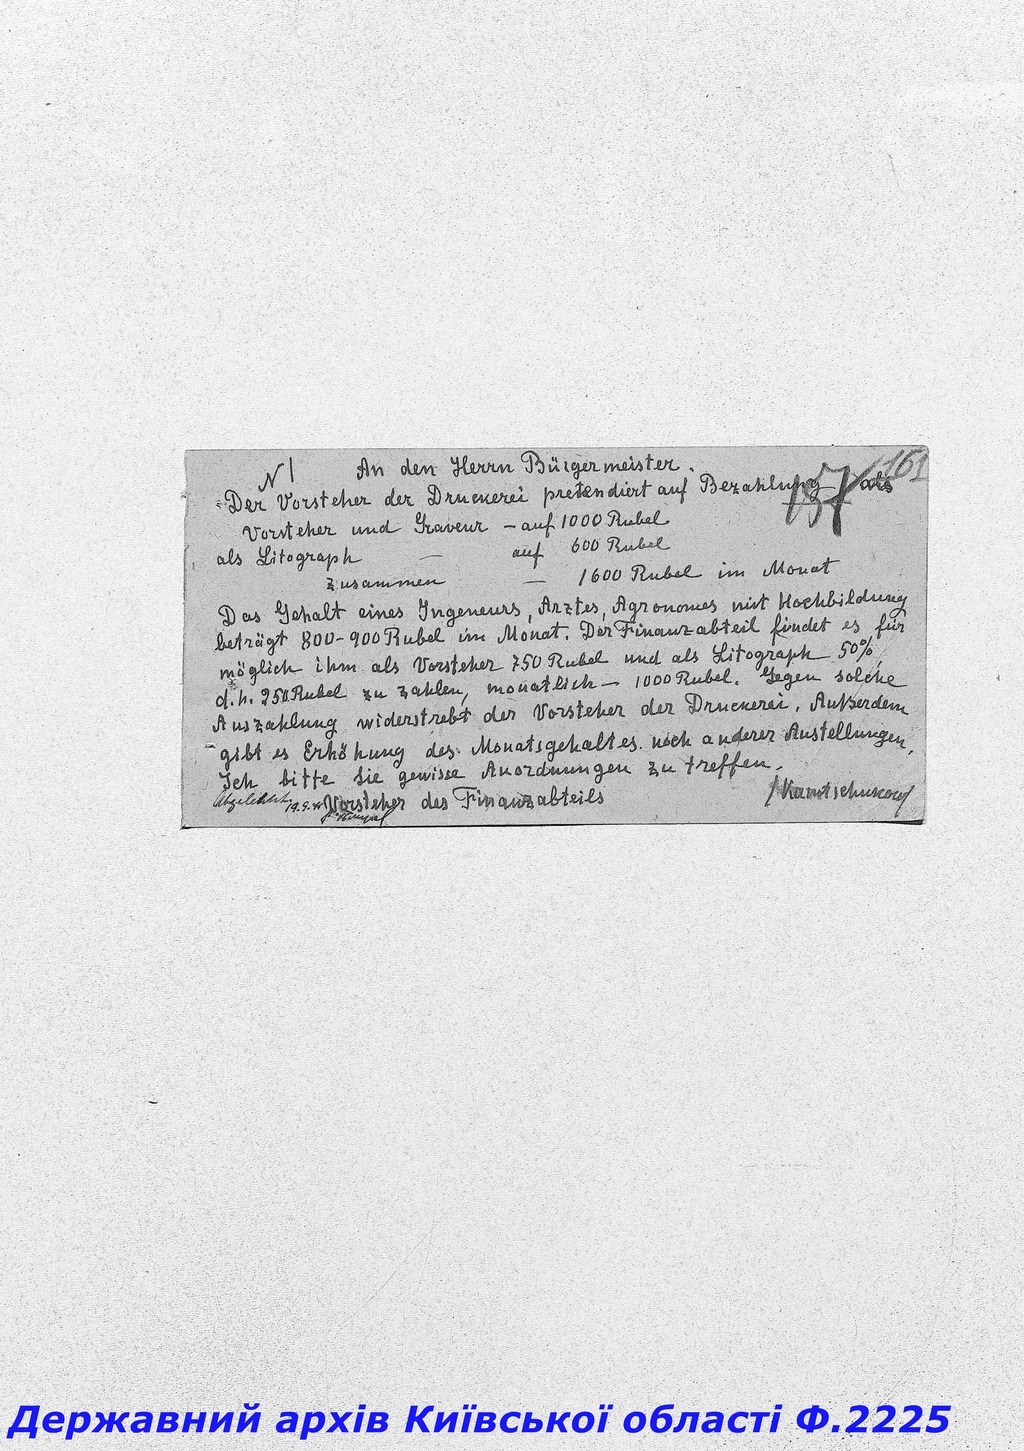 161
N 1 An den Herrn Bürgermeister.
157
Der Vorsteher der Druckerei pretendiert auf Bezahlung als
Vorsteher und Graveur – auf 1000 Rubel
als Litograph – auf 600 Rubel
zusammen – 1600 Rubel im Monat
Das Gehalt eines Ingeneurs, Arztes, Agronomes mit Hochbildung
beträgt 800-900 Rubel im Monat. Der Finanzabteil findet es für
möglich ihm als Vorsteher 750 Rubel und als Litograph 50%
d.h. 250 Rubel zu zahlen, monatlich – 1000 Rubel. Gegen solche
Auszahlung widerstrebt der Vorsteher der Druckerei. Außerdem
gibt es Erhöhung des Monatsgehaltes noch anderer Anstellungen.
Ich bitte Sie gewisse Anordnungen zu treffen.
Vorsteher des Finanzabteils
Abgelehnt 19.9.
Державний архів Київської області Ф.2225